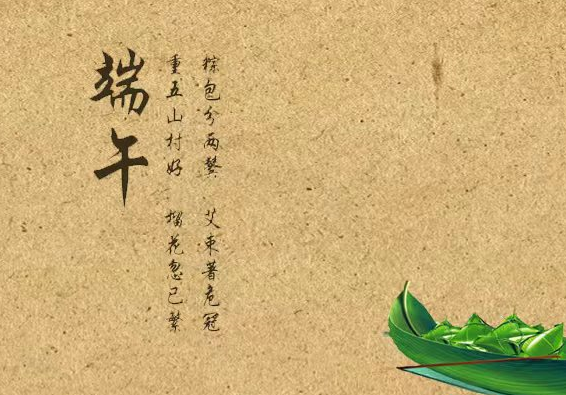 端午
重五山村好 榴花忽已繁
粽包分两髻 艾束著危冠